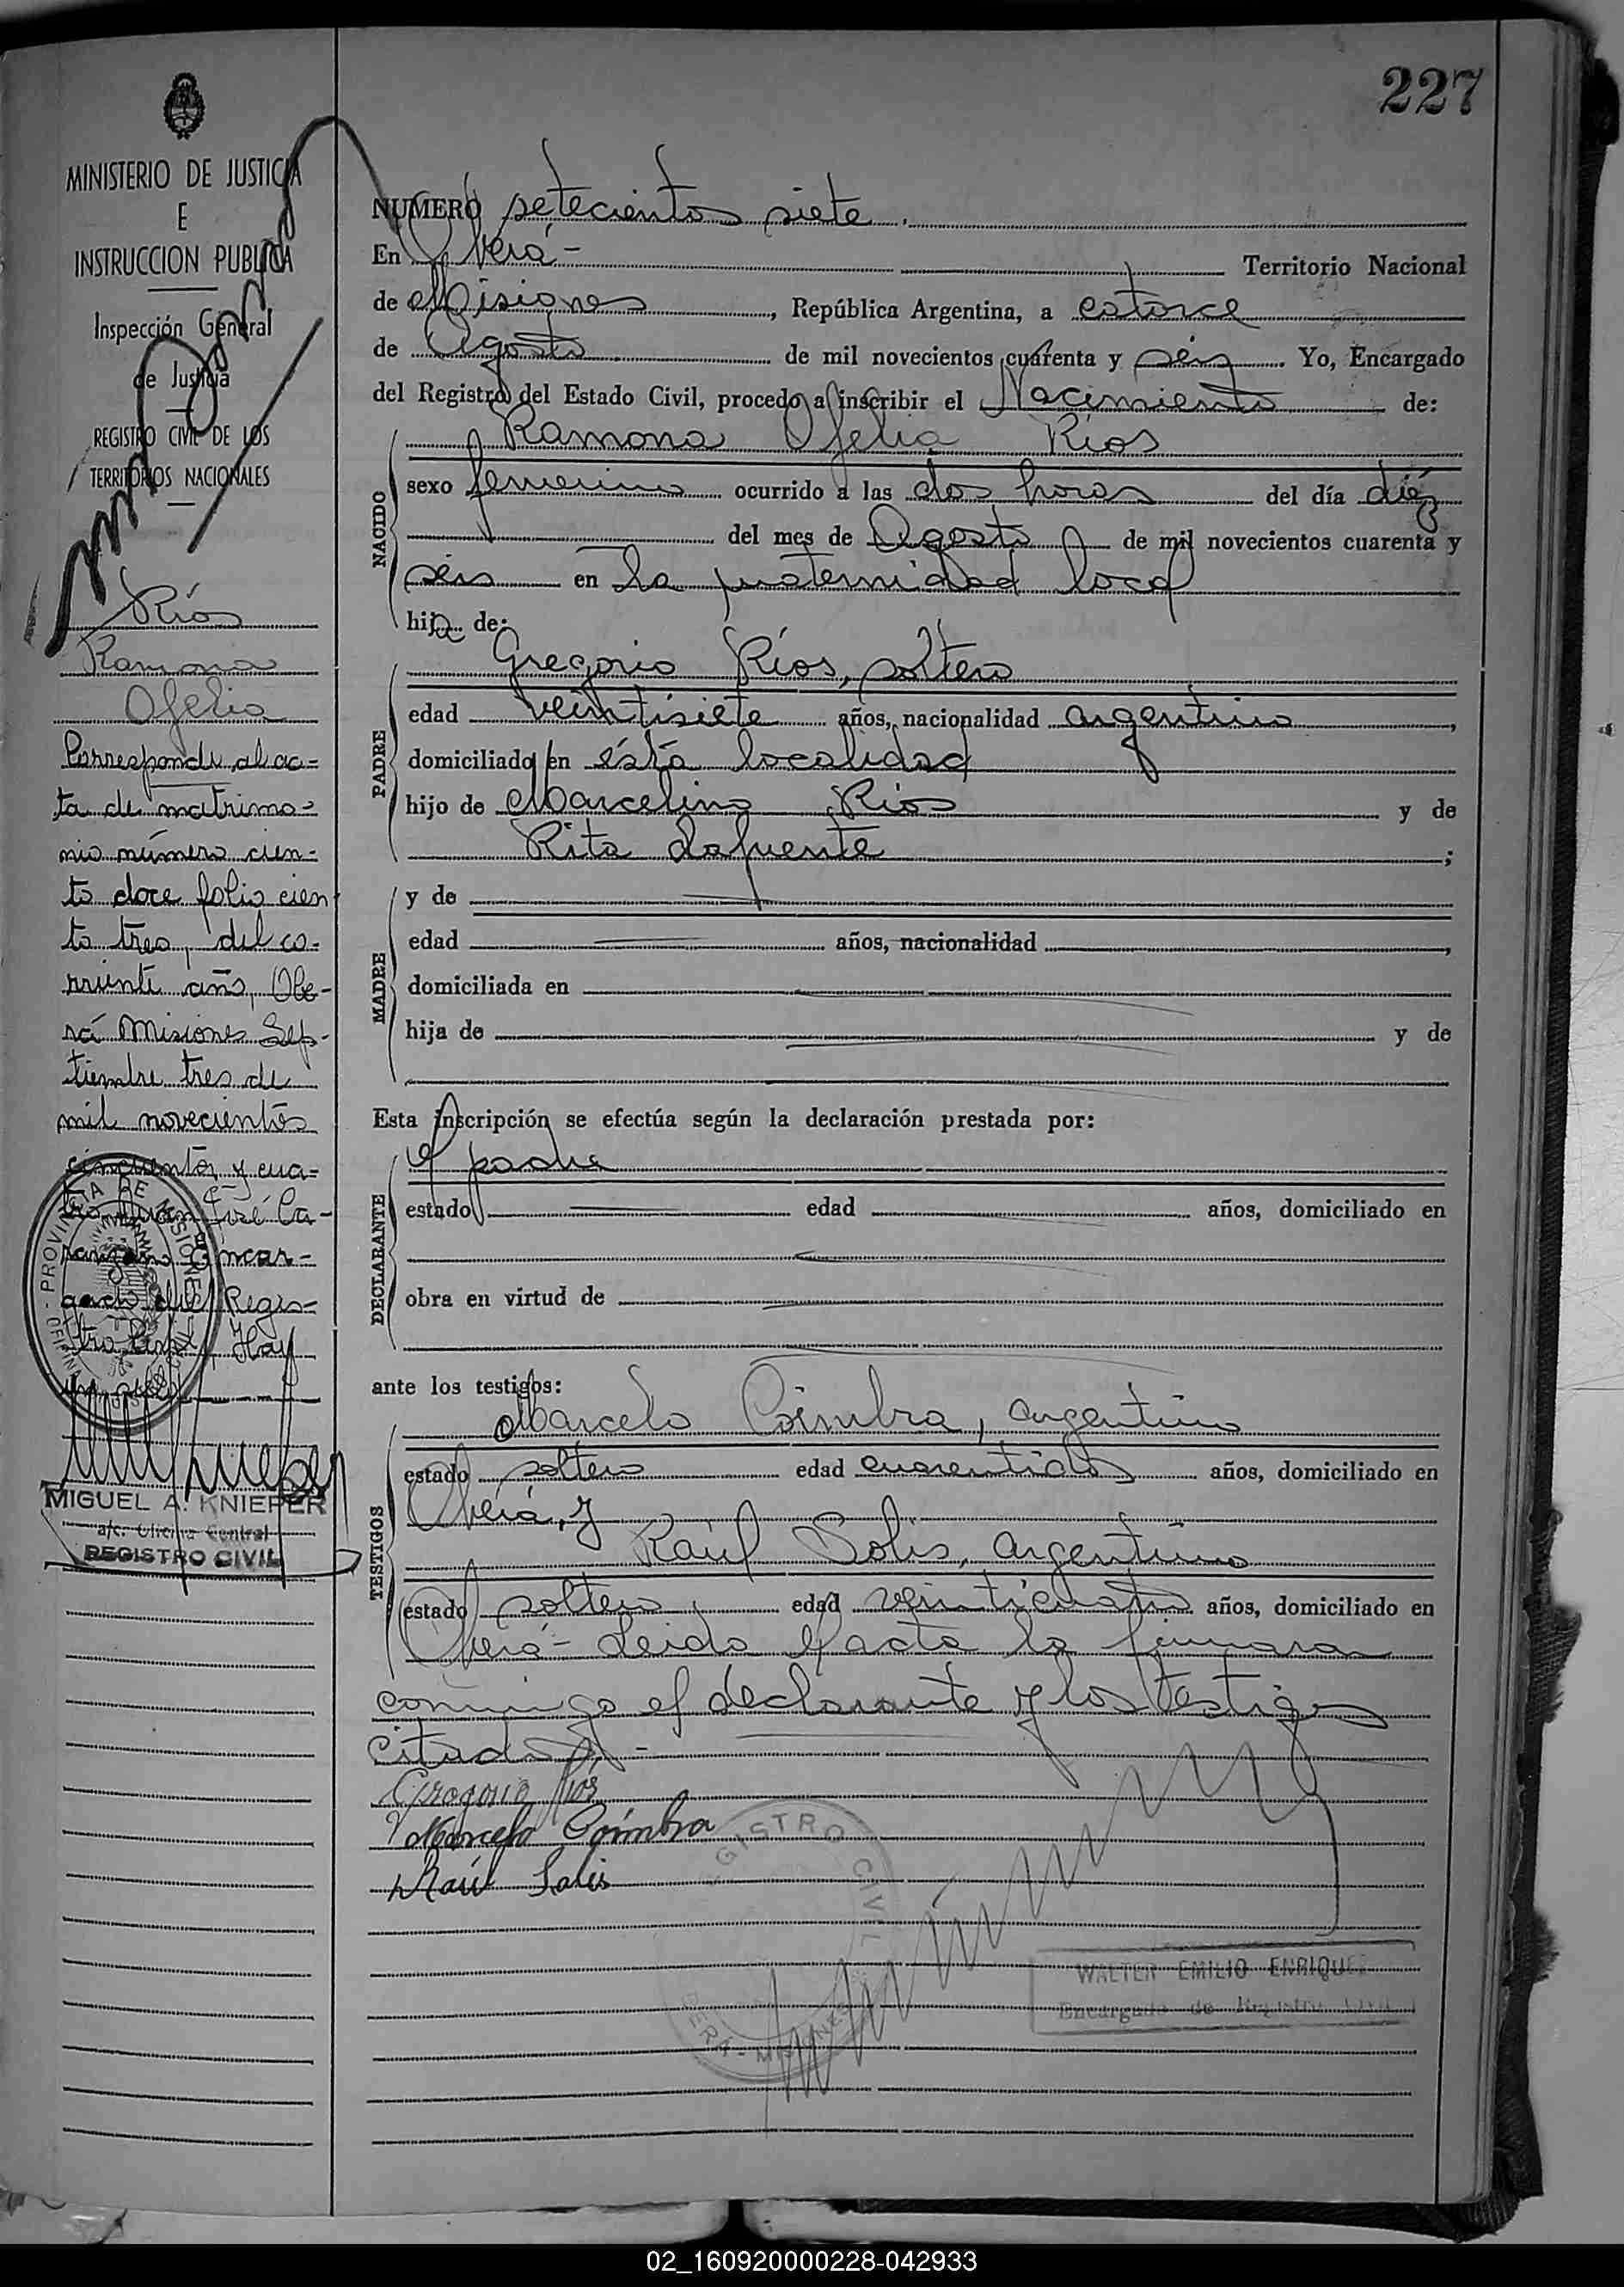 227
MINISTERIO DE JUSTICIA
E
INSTRUCCION PUBLICA
Inspección General
de Justicia
REGISTRO CIVIL DE LOS
TERRITORIOS NACIONALES
Ríos
Ramona
Ofelia
Corresponde al ac=
ta de matrimo=
nio número cien=
to doce folio cien
to tres, del co-
rriente año, Obe-
rá Misiones Sep-
tiembre tres de
mil novecientos
cincuenta y cua=
José Ca-
Encar-
gado del Regis=
tro Civil, Hay
PROVINCIA DE MISIONES
MIGUEL A. KNIEPER
a/c. Oficina Central
REGISTRO CIVIL
NUMERO setecientos siete.
En Oberá- Territorio Nacional
de Misiones, República Argentina, a catorce
de Agosto de mil novecientos cuarenta y seis. Yo, Encargado
del Registro del Estado Civil, procedo a inscribir el Nacimiento de:
NACIDO
Ramona Ofelia Ríos
sexo femenino ocurrido a las dos horas del día diéz
del mes de Agosto de mil novecientos cuarenta y
seis en la maternidad local
hija de:
PADRE
Gregorio Ríos, soltero
edad veintisiete años, nacionalidad argentino,
domiciliado en ésta localidad
hijo de Marcelino Ríos y de
Rita Lafuente;
MADRE
y de
edad años, nacionalidad,
domiciliada en
hija de y de
Esta inscripción se efectúa según la declaración prestada por:
DECLARANTE
el padre
estado edad años, domiciliado en
obra en virtud de
ante los testigos:
TESTIGOS
Marcelo Coimbra, argentino
estado soltero edad cuarentidos años, domiciliado en
Oberá, y
Raúl Solis, argentino
estado soltero, edad veinticuatro años, domiciliado en
Oberá- Leida el acta la firmaron
conmigo el declarante y los testigos
citados.-
Gregorio Ríos
Marcelo Coimbra
Raúl Solis
REGISTRO CIVIL
OBERÁ - MISIONES
WALTER EMILIO ENRIQUEZ
Encargado de Registro Civil
02_160920000228-042933